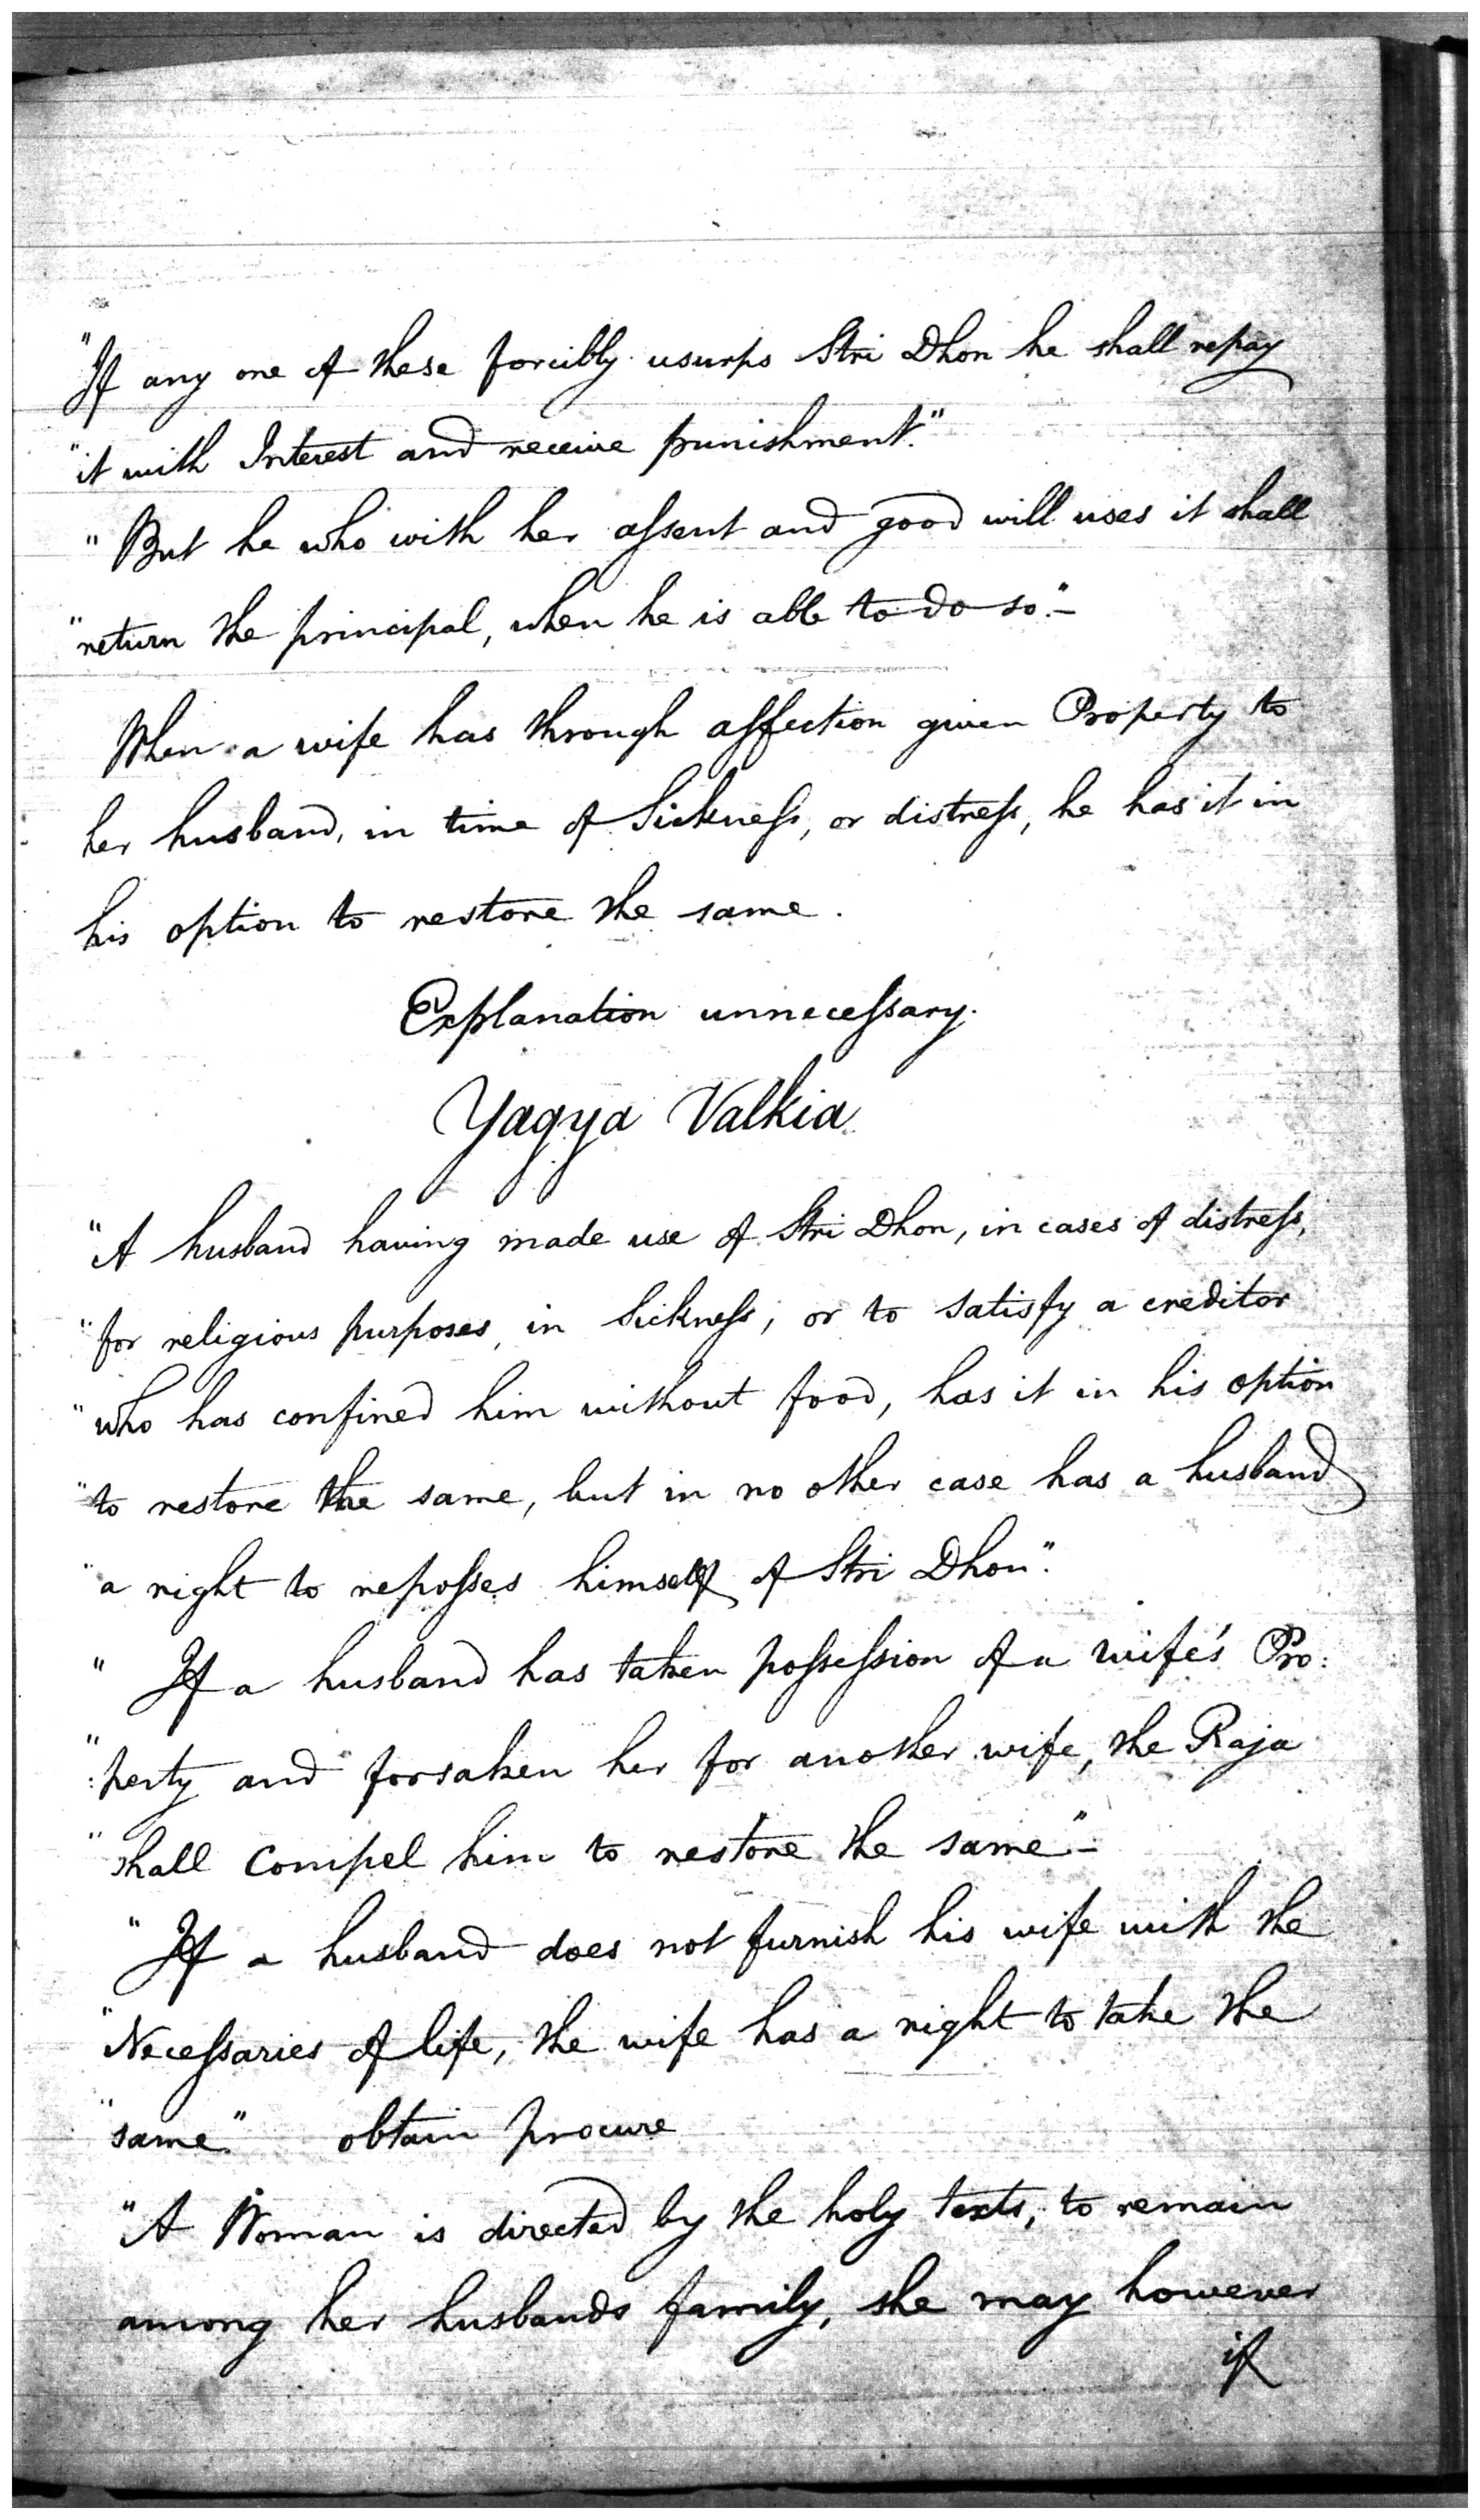 "If any one of these forcibly usurps Stri Dhon he shall repay
"it with Interest and receive punishment."
"But he who with her assent and good will uses it shall
"return the principal, when he is able to do so."-
When a wife has through affection given Property to
her husband, in time of Sickness, or distress, he has it in
his option to restore the same.
Explanation unnecessary.
Yagya Valkia
"A husband having made use of Stri Dhon, in cases of distress,
"for religious purposes, in Sickness, or to satisfy a creditor
"who has confined him without food, has it in his option
"to restore the same, but in no other case has a husband
"a right to reposses himself of Stri Dhon".
"If a husband has taken possession of a wife's Pro:
":perty and forsaken her for another wife, the Raja
"shall compel him to restore the same"-
"If a husband does not furnish his wife with the
"Necessaries of life, the wife has a right to take the
"same" obtain procure
"A Woman is directed by the holy texts, to remain
among her husbands family, she may however
if